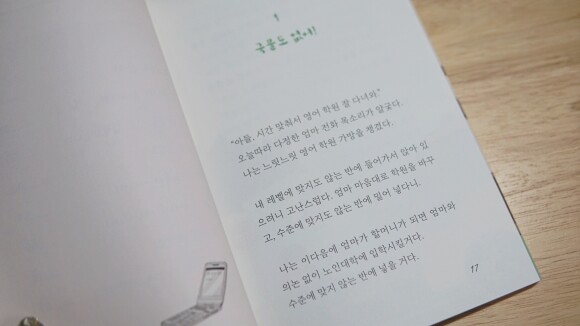 1
국물도 없어!
"아들, 시간 맞춰서 영어 학원 잘 다녀와."
오늘따라 다정한 엄마 전화 목소리가 얄궂다.
나는 느릿느릿 영어 학원 가방을 챙겼다.
내 레벨에 맞지도 않는 반에 들어가서 앉아 있
으려니 고난스럽다. 엄마 마음대로 학원을 바꾸
고, 수준에 맞지도 않는 반에 밀어 넣다니.
나는 이다음에 엄마가 할머니가 되면 엄마와
의논 없이 노인대학에 입학시킬거다.
수준에 맞지 않는 반에 넣을 거다.
17